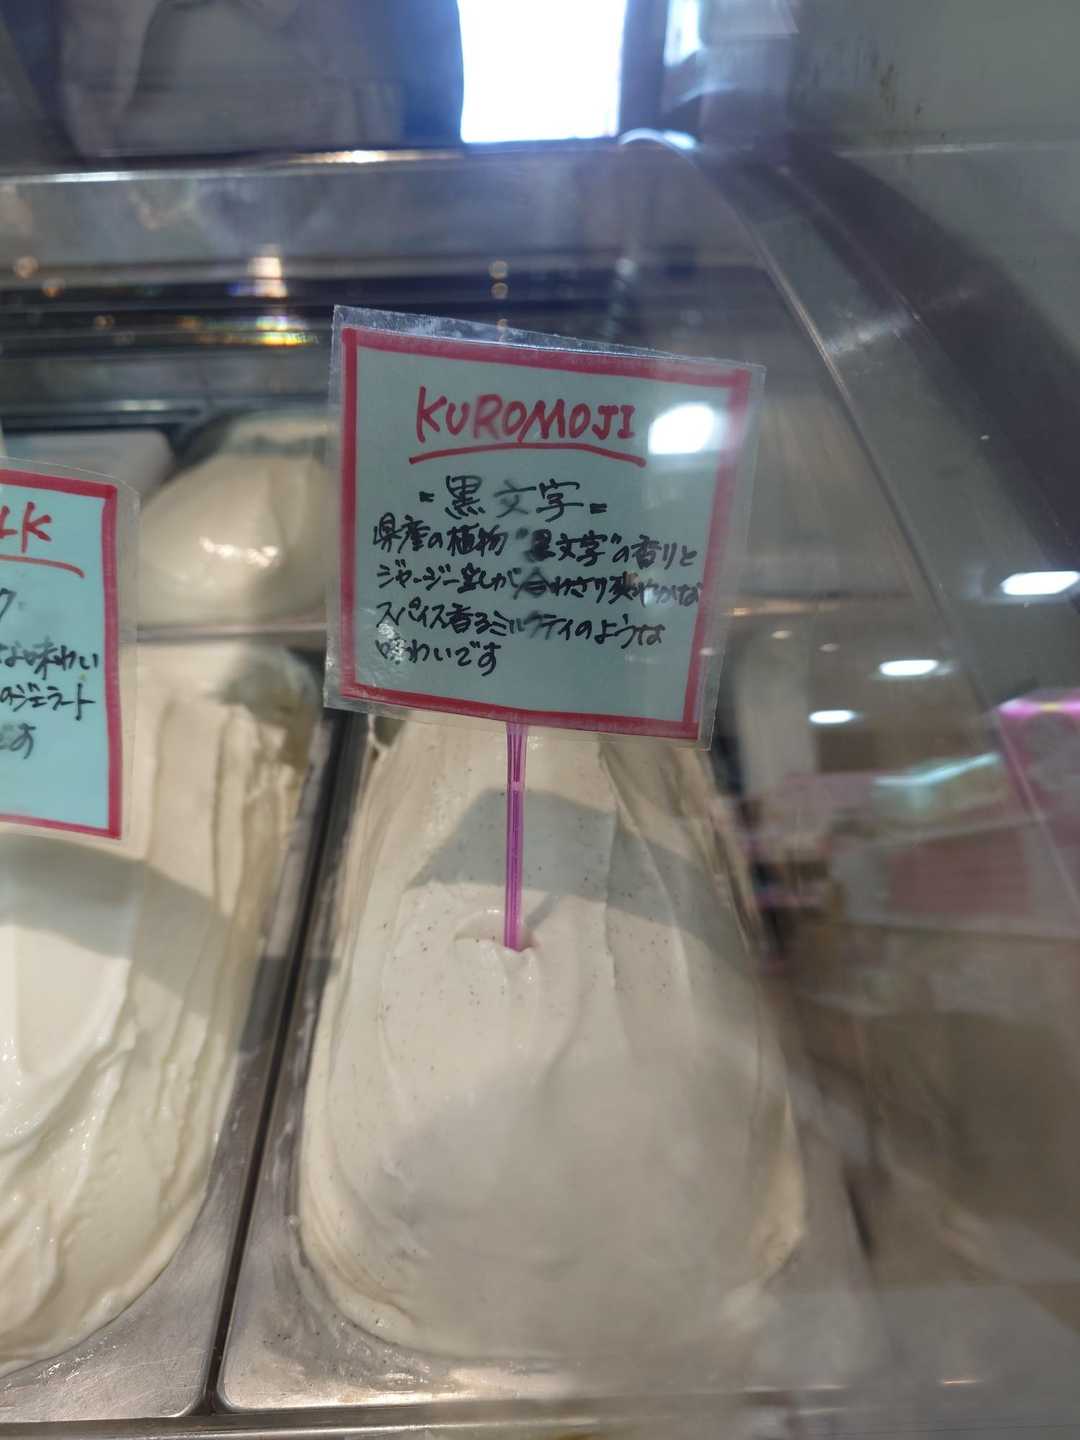 KUROMOJI
=黒文字=
県産の植物"黒文字"の香りと
ジャージー乳が合わさり爽やかな
スパイス香るミルクティのような
味わいです
LK
ク
な味わい
のジェラート
です